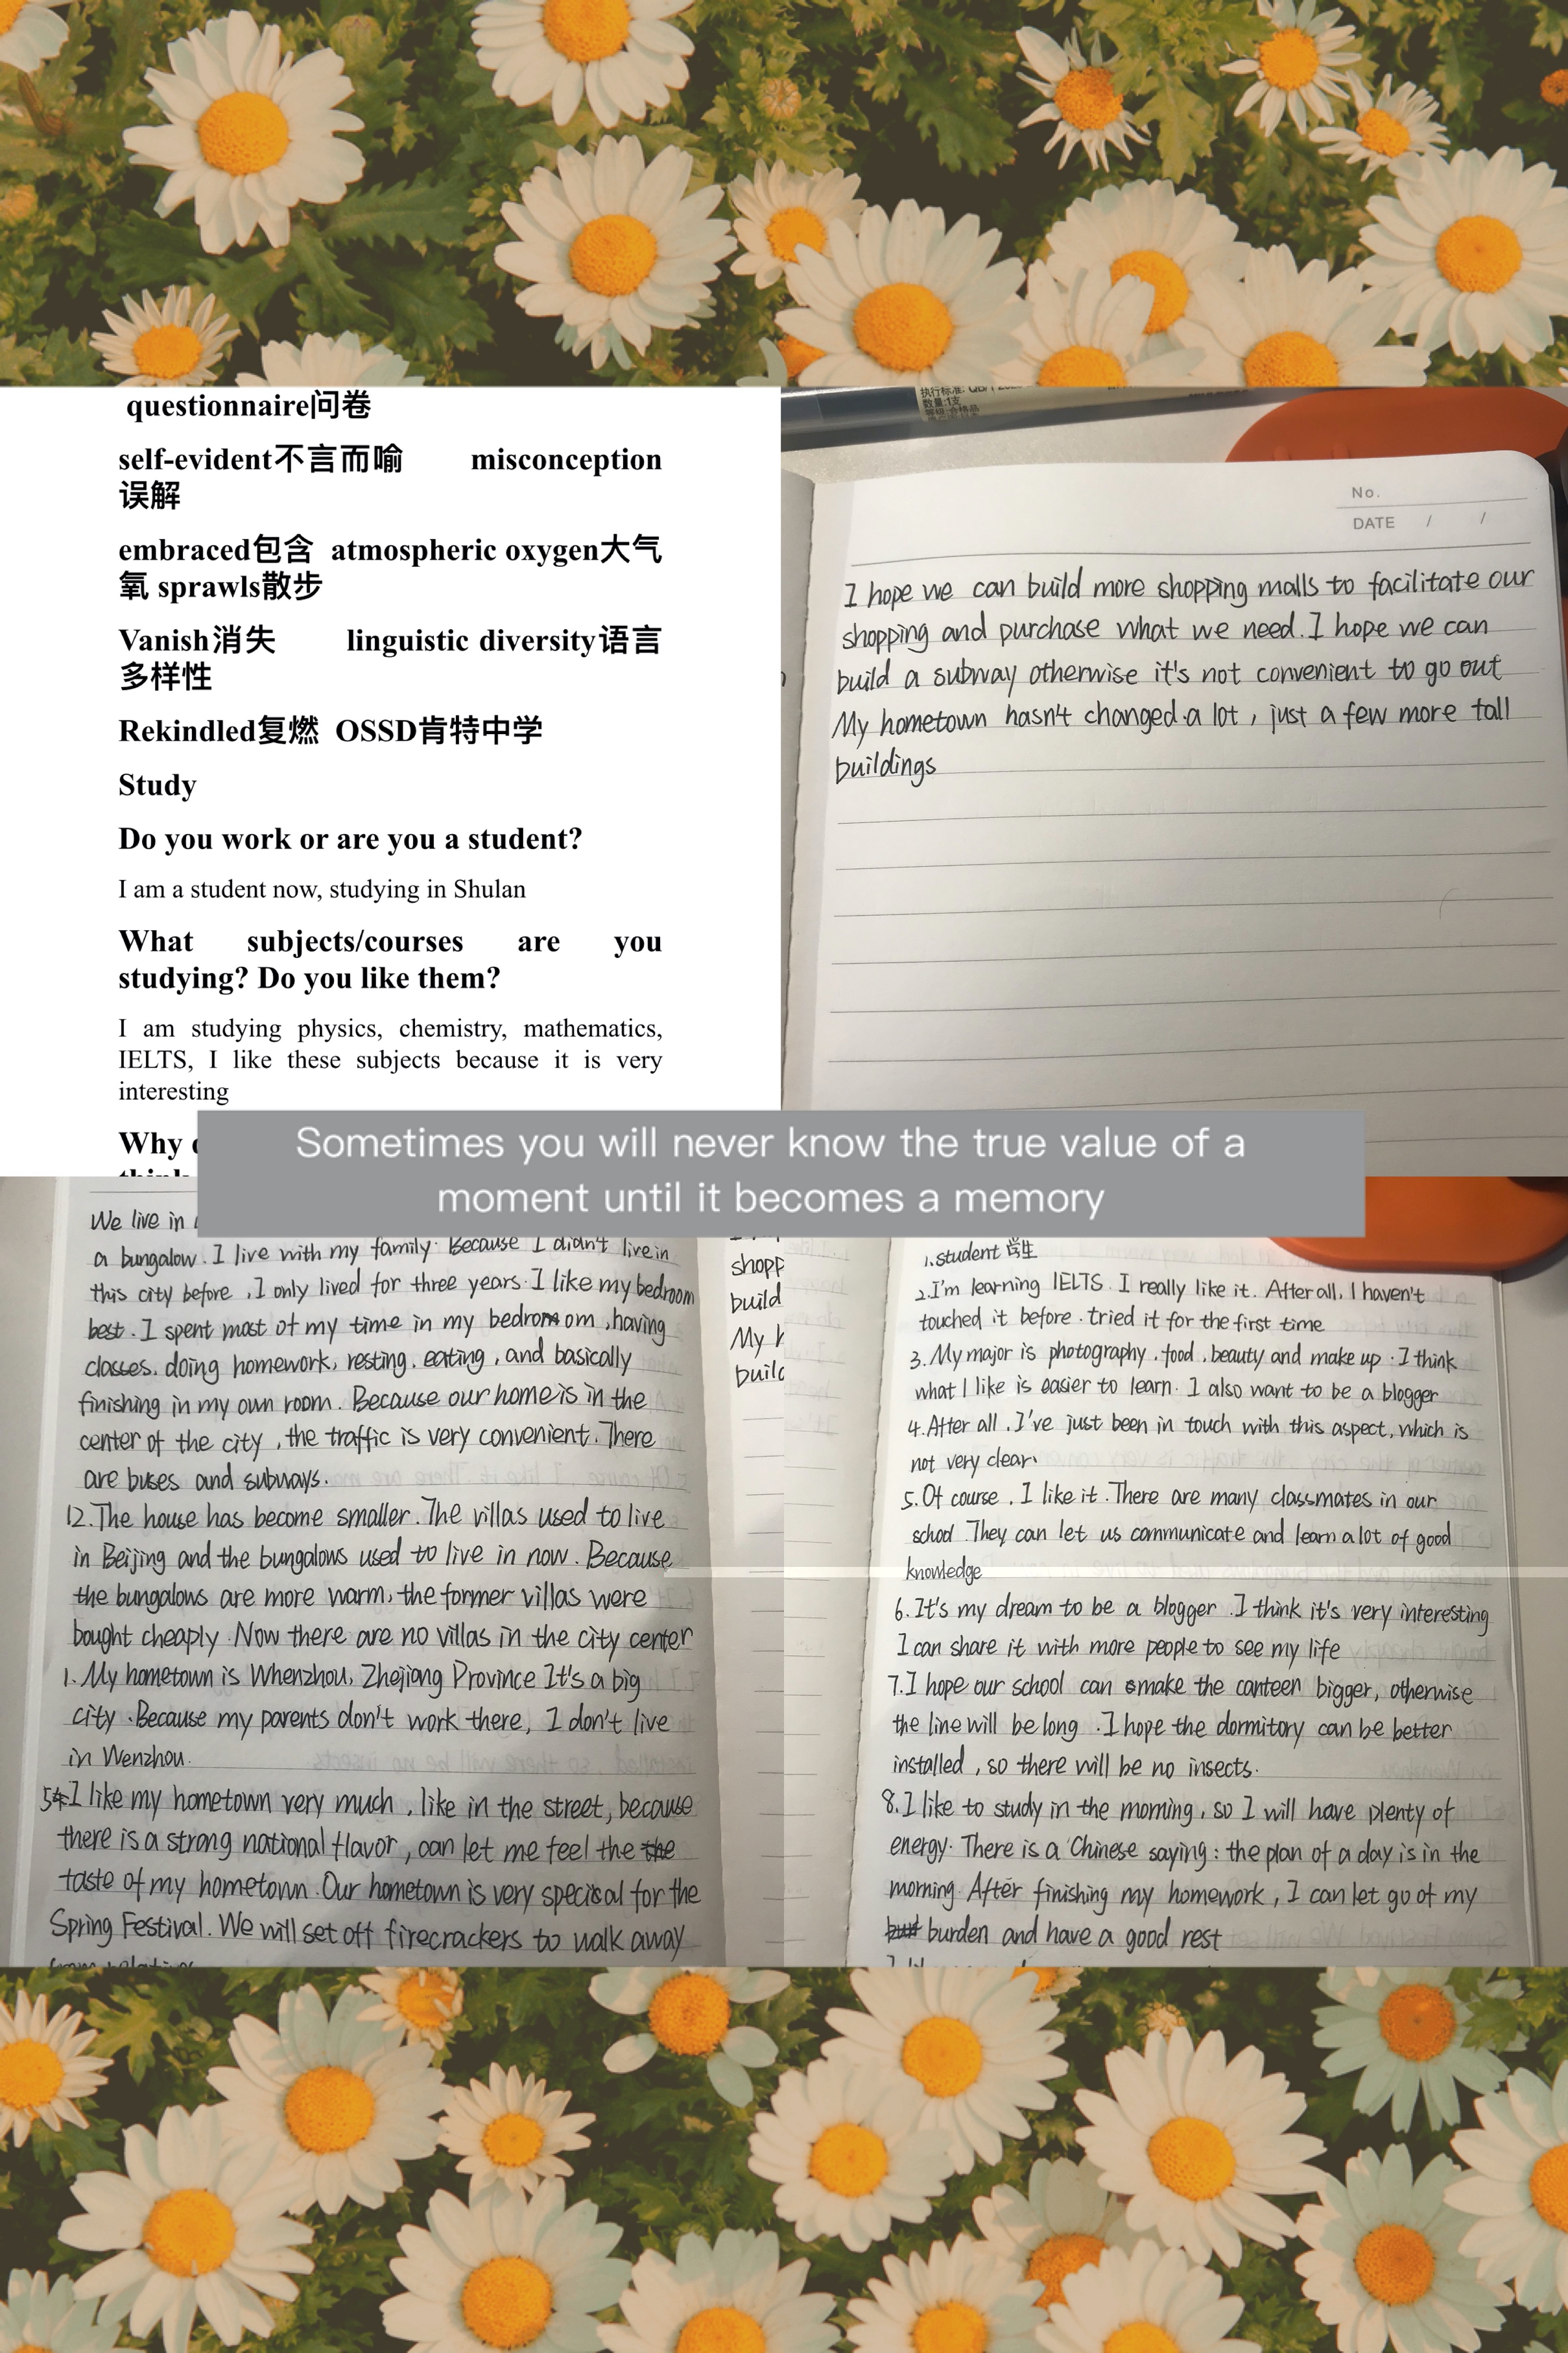 questionnaire问卷
self-evident不言而喻 misconception
误解
embraced包含 atmospheric oxygen大气
氧 sprawls散步
Vanish消失 linguistic diversity语言
多样性
Rekindled复燃 OSSD肯特中学
Study
Do you work or are you a student?
I am a student now, studying in Shulan
What subjects/courses are you
studying? Do you like them?
I am studying physics, chemistry, mathematics,
IELTS, I like these subjects because it is very
interesting
Why
执行标准: QB/T
数量:1支
等级:合格品
No.
DATE / /
I hope we can build more shopping malls to facilitate our
shopping and purchase what we need. I hope we can
build a subway otherwise it's not convenient to go out
My hometown hasn't changed a lot, just a few more tall
buildings
Sometimes you will never know the true value of a
moment until it becomes a memory
We live in
a bungalow. I live with my family. Because I didn't live in
this city before, I only lived for three years. I like my bedroom
best. I spent most of my time in my bedroom om, having
classes, doing homework, resting, eating, and basically
finishing in my own room. Because our home is in the
center of the city, the traffic is very convenient. There
are buses and subways.
12. The house has become smaller. The villas used to live
in Beijing and the bungalows used to live in now. Because
the bungalows are more warm, the former villas were
bought cheaply. Now there are no villas in the city center
1. My hometown is Whenzhou, Zhejiang Province It's a big
city. Because my parents don't work there, I don't live
in Wenzhou.
5. I like my hometown very much, like in the street, because
there is a strong national flavor, can let me feel the the
taste of my hometown. Our hometown is very special for the
Spring Festival. We will set off firecrackers to walk away
shopp
build
My h
build
1. student 学生
2. I'm learning IELTS. I really like it. After all, I haven't
touched it before. tried it for the first time
3. My major is photography, food, beauty and make up. I think
what I like is easier to learn. I also want to be a blogger
4. After all, I've just been in touch with this aspect, which is
not very clear.
5. Of course, I like it. There are many classmates in our
school. They can let us communicate and learn a lot of good
knowledge
6. It's my dream to be a blogger. I think it's very interesting
I can share it with more people to see my life
7. I hope our school can make the canteen bigger, otherwise
the line will be long. I hope the dormitory can be better
installed, so there will be no insects.
8. I like to study in the morning, so I will have plenty of
energy. There is a Chinese saying: the plan of a day is in the
morning After finishing my homework, I can let go of my
burden and have a good rest